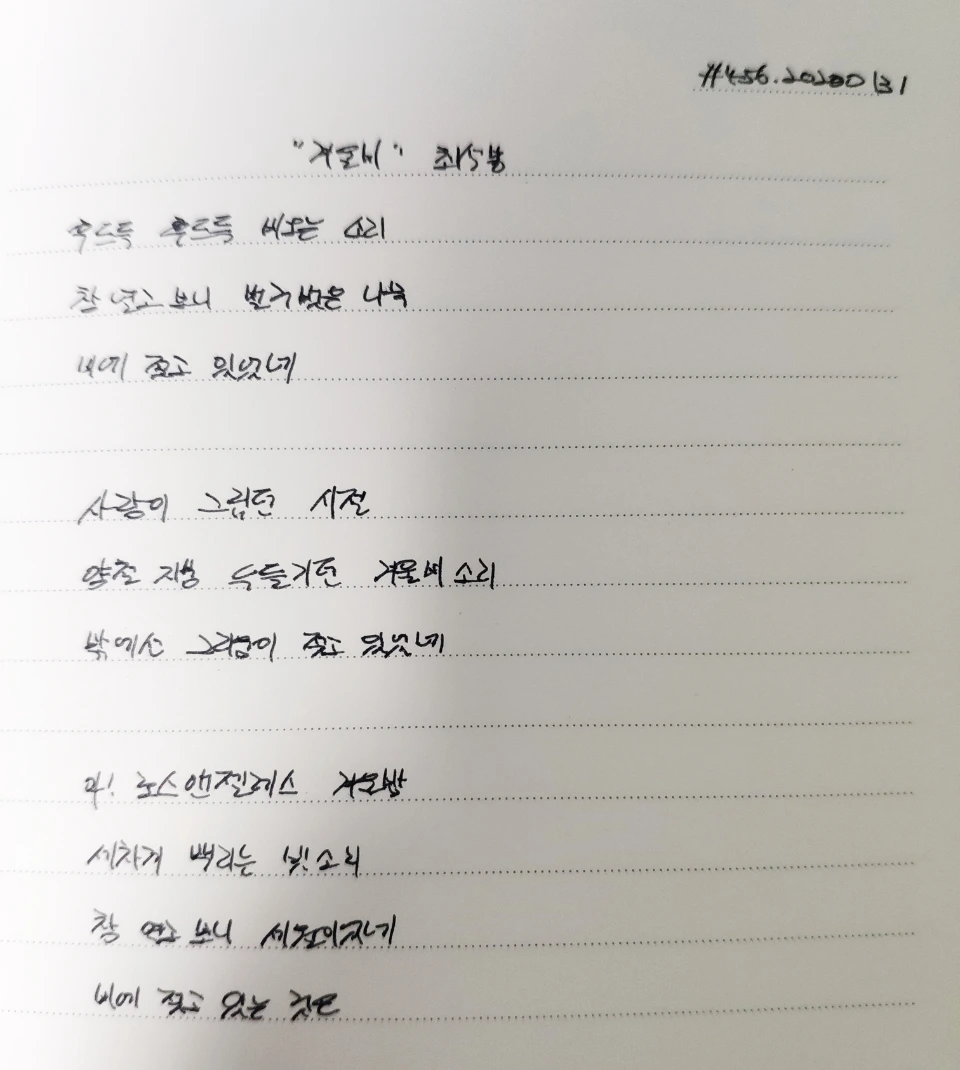 #456.20200131
"겨울비" 최석봉
후드득 후드득 비오는 소리
창 열고 보니 벌거벗은 나목
비에 젖고 있었네
사랑이 그립던 시절
양철 지붕 두들기던 겨울비 소리
밖에선 그리움이 젖고 있었네
아! 로스앤젤레스 겨울밤
세차게 때리는 빗소리
창 열고 보니 세월이구나
비에 젖고 있는 것은